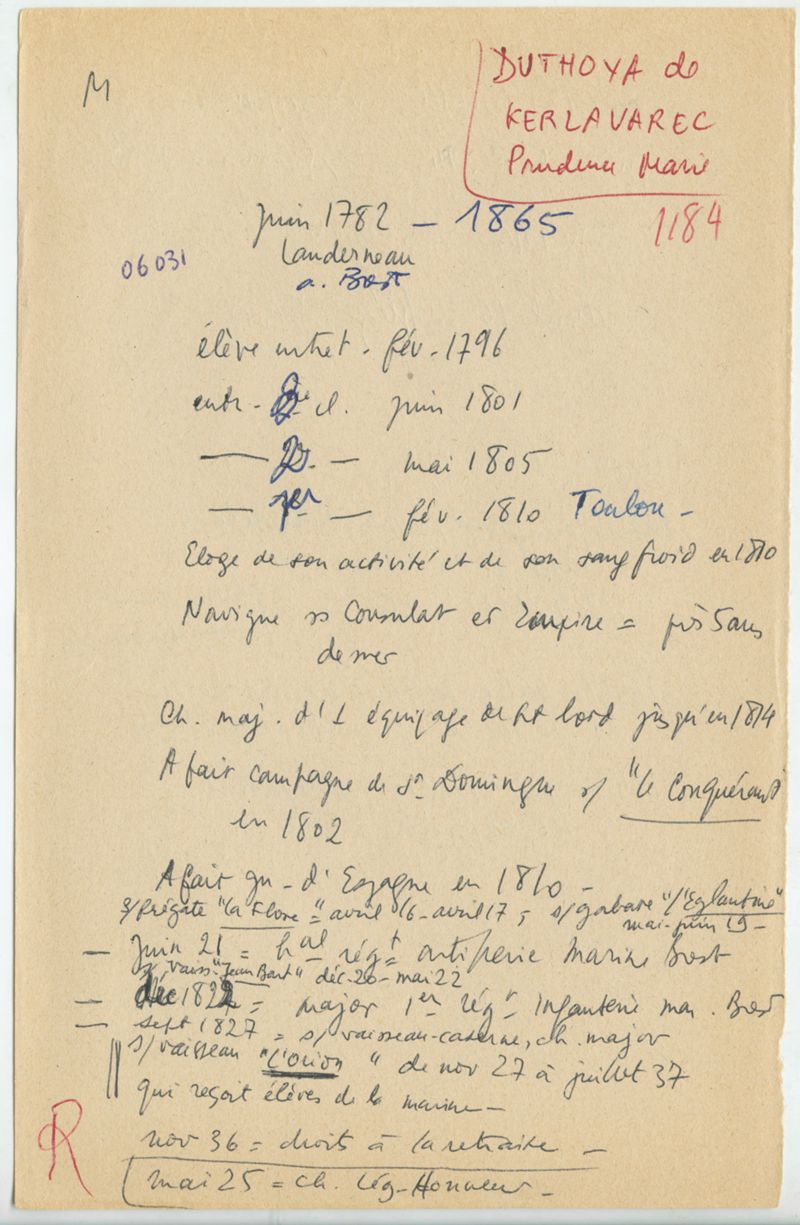 M
DUTHOYA de
KERLAVAREC
Prudence Marie
1184
juin 1782 - 1865
Landerneau
a. Brest
06031
élève entret. fév. 1796
entr. 3e cl. juin 1801
— 2e — mai 1805
— 1er — fév. 1810 Toulon -
Eloge de son activité et de son sang froid en 1810
Navigue ss Consulat et Empire = près 5 ans
de mer
Ch. maj. d'1 équipage de ht bord jusqu'en 1814
A fait campagne de St Domingue s/ "le Conquérant"
en 1802
A fait gu - d'Espagne en 1810 -
s/ frégate "la Flore" = avril 16 - avril 17, s/ gabare "l'Eglantine"
mai-juin 19 -
— Juin 21 = hal régt artillerie Marine Brest
s/ vaiss. "Jean Bart" déc. 20 - mai 22
— déc 1822 = major 1er régt Infanterie mar. Brest
— sept 1827 = s/ vaisseau-caserne, ch. major
s/ vaisseau "L'Orion" de nov 27 à juillet 37
qui reçoit élèves de la marine -
nov 36 = droits à la retraite -
mai 25 = ch. Lég-Honneur -
R